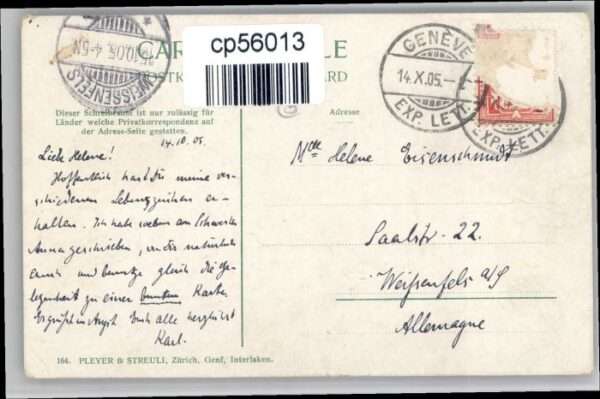 CAR LE
cp56013
POSTK ARD
WEISSENFELS
GENÈVE
14.X.05.—
EXP. LETT.
EXP. LETT.
Dieser Schreibraum ist nur zulässig für
Länder welche Privatkorrespondenz auf
der Adress-Seite gestatten.
Adresse
14.10.05.
Liebe Helene!
Hoffentlich hast du meine ver-
schiedenen Lebenszeichen er-
halten. Ich habe soeben an Schwester
Anna geschrieben, an dir natürlich
auch und benutze gleich die Ge-
legenheit zu einer bunten Karte.
Euch alle herzlichst
Karl.
Mlle Helene Eisenschmidt
Saalstr. 22.
Weißenfels a/S
Allemagne
164. PLEYER & STREULI, Zürich, Genf, Interlaken.